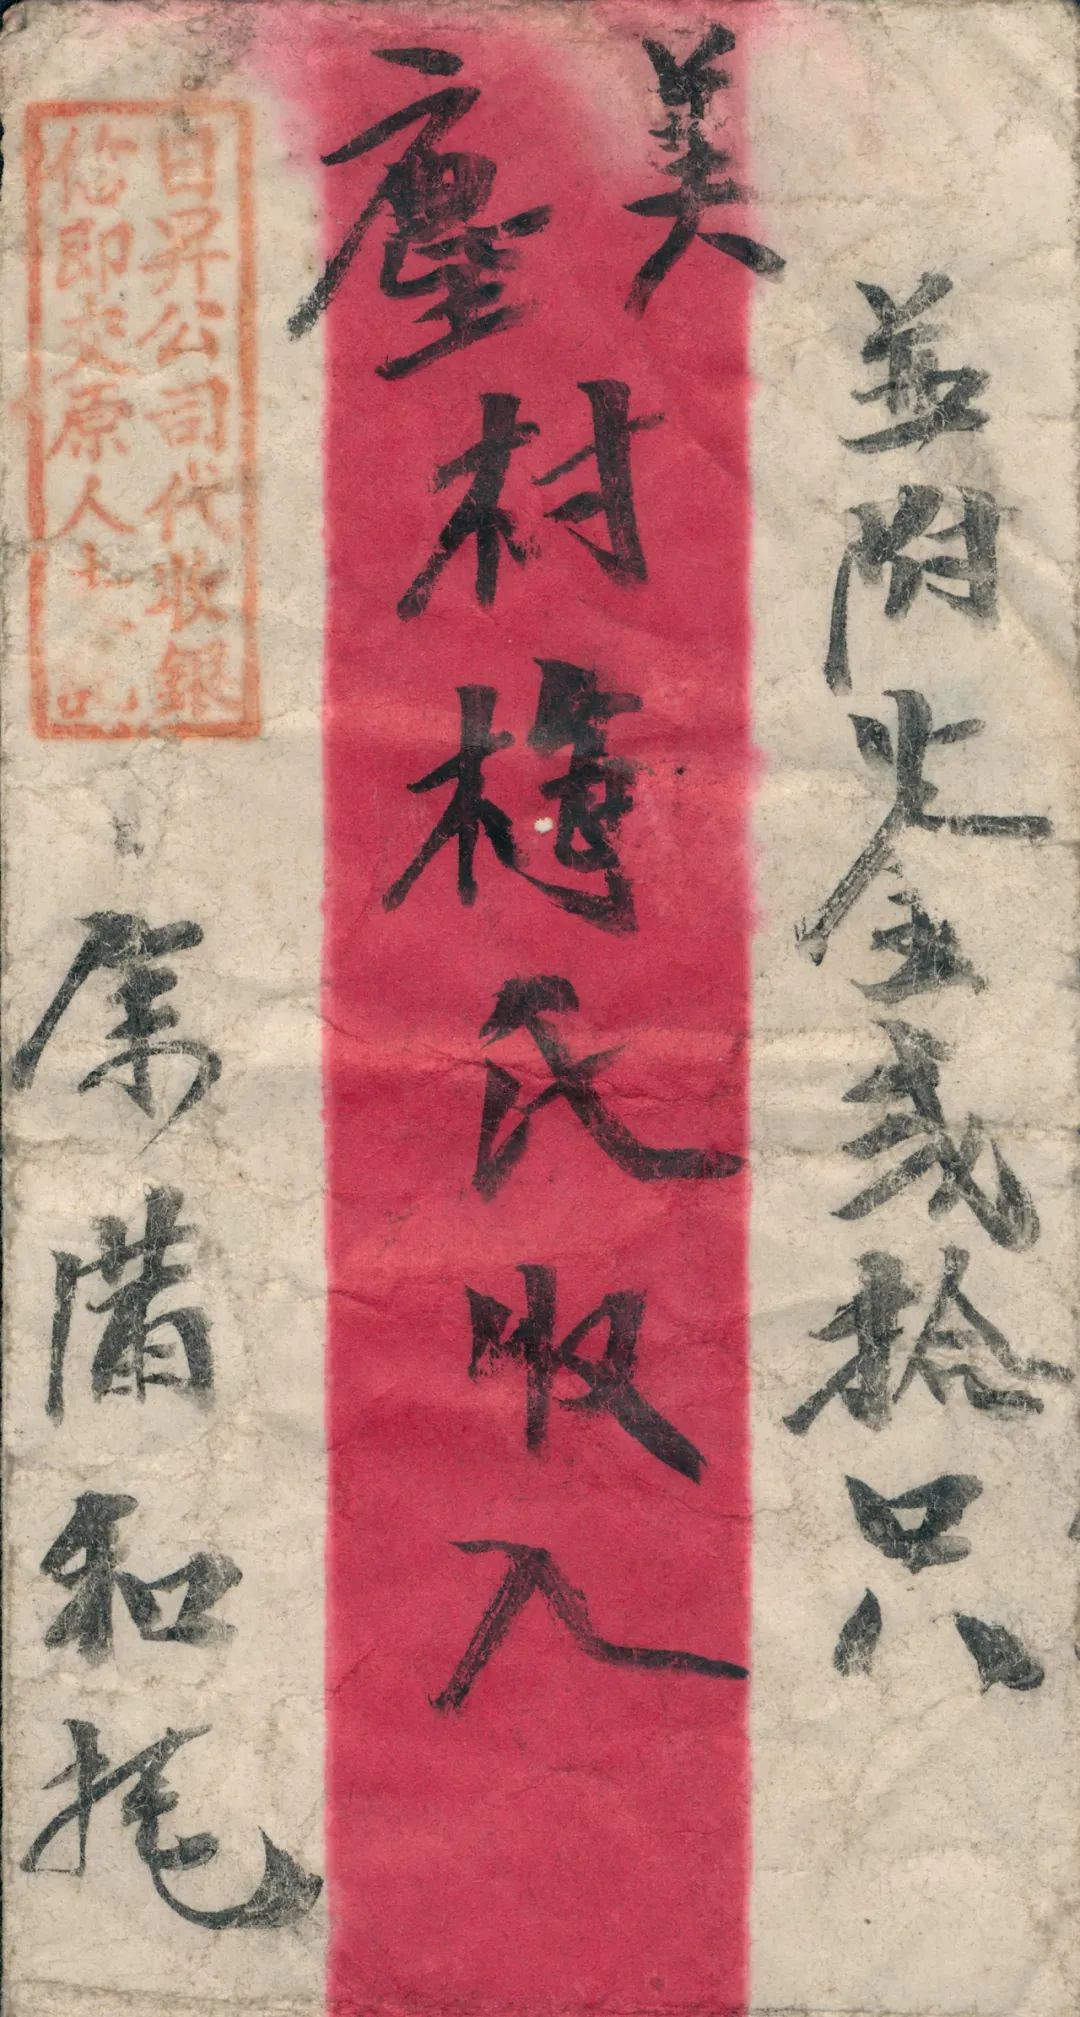 美
並附金弍拾只
廛村梅氏收入
日昇公司代收銀
信即交原人
和托